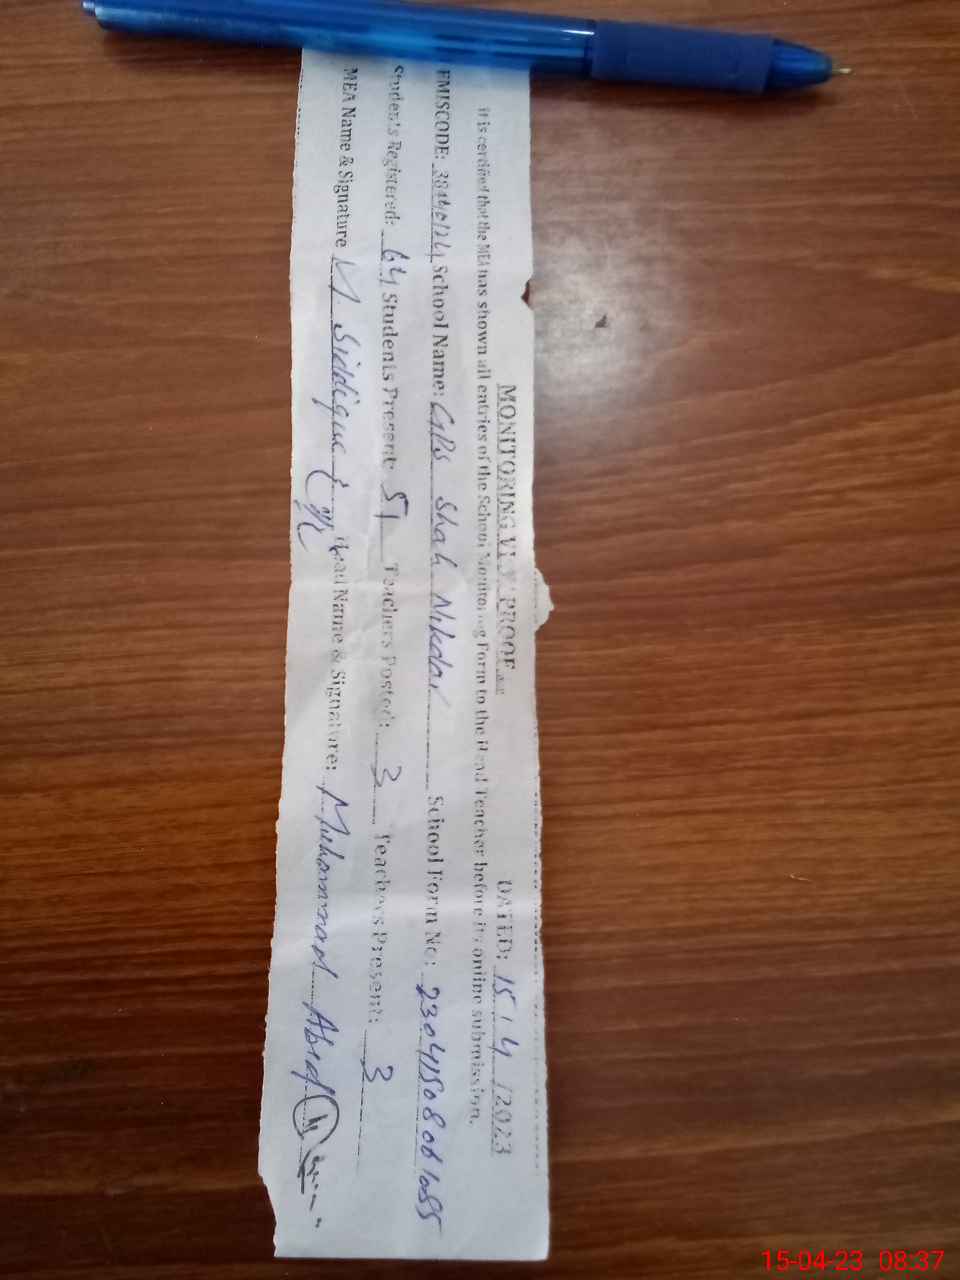 MONITORING VISIT PROOF DATED: 15/4/2023
It is certified that the MEA has shown all entries of the School Monitoring Form to the Head Teacher before its online submission.
EMISCODE: School Name: GPS Shah Nikdar School Form No:
Students Registered: 64 Students Present: 51 Teachers Posted: 3 Teachers Present: 3
MEA Name & Signature M. Siddique Head Name & Signature: Muhammad Abid
15-04-23 08:37